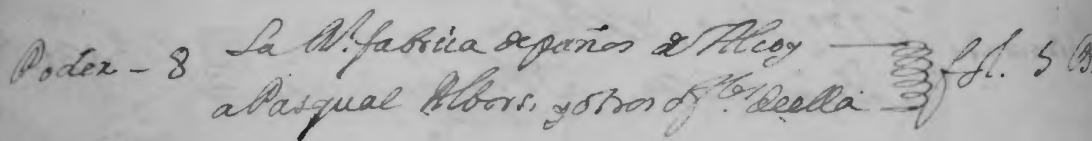 Poder - 8 La Rl. fabrica de paños de Alcoy
a Pasqual Albors. y otros ofles. de ella fol. 5 B